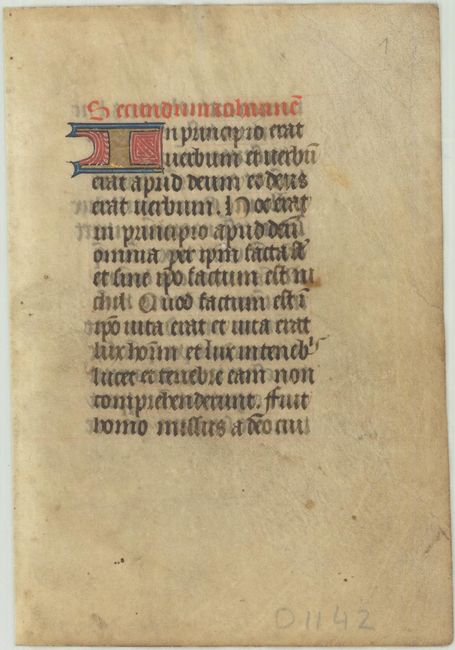 1
Secundum iohannē
In principio erat
uerbum et uerbū
erat apud deum et deus
erat uerbum. Hoc erat
in principio apud deū
omnia per ipm̄ facta sūt
et sine ipō factum est ni
chil. Quod factum est ī
ipō uita erat et uita erat
lux hom̄ et lux in teneb̛
lucet et tenebre eam non
comprehenderunt. ffuit
homo missus a dēo cui
01142